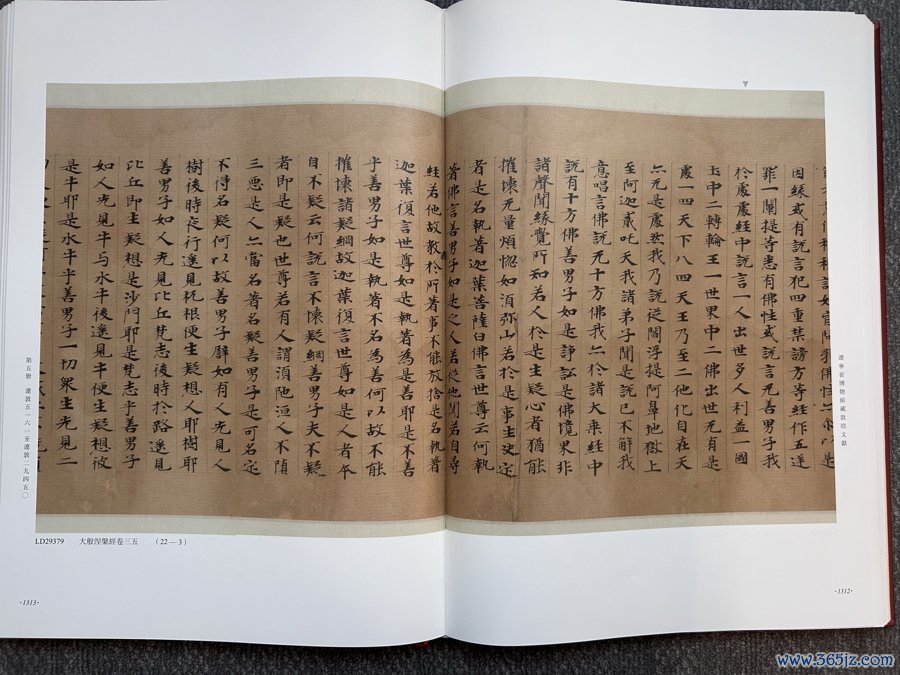 遼寧省博物館藏敦煌文獻
因緣或有說言犯四重禁謗方等經作五逆
罪一闡提等悉有佛性或說言无善男子我
於處處經中說言一人出世多人利益一國
土中二轉輪王一世界中二佛出世无有是
處一四天下八四天王乃至二他化自在天
亦无是處然我乃說從閻浮提阿鼻地獄上
至阿迦貳吒天我諸弟子聞是說已不解我
意唱言佛說无十方佛我亦於諸大乘經中
說有十方佛善男子如是諍訟是佛境界非
諸聲聞緣覺所知若人於是生疑心者猶能
摧壞无量煩惱如須弥山若於是事生决定
者是名執著迦葉菩薩白佛言世尊云何執
著佛言善男子如是之人若從他聞若自尋
經若他故教於所著事不能放捨是名執著
迦葉復言世尊如是執著為是善耶是不善
乎善男子如是執著不名為善何以故不能
摧壞諸疑綱故迦葉復言世尊如是人者本
自不疑云何說言不壞疑綱善男子夫不疑
者即是疑也世尊若有人謂須陁洹人不墮
三惡是人亦當名著名疑善男子是可名定
不得名疑何以故善男子譬如有人先見人
樹後時夜行遥見杌根便生疑想人耶樹耶
善男子如人先見比丘梵志後時於路遥見
比丘即生疑想是沙門耶是梵志乎善男子
如人先見牛与水牛後遥見牛便生疑想彼
是牛耶是水牛乎善男子一切衆生先見二
第五冊 遼敦五一六一至遼敦二九四五〇
LD29379 大般涅槃經卷三五 (22—3)
·1312·
·1313·
www.365jz.com